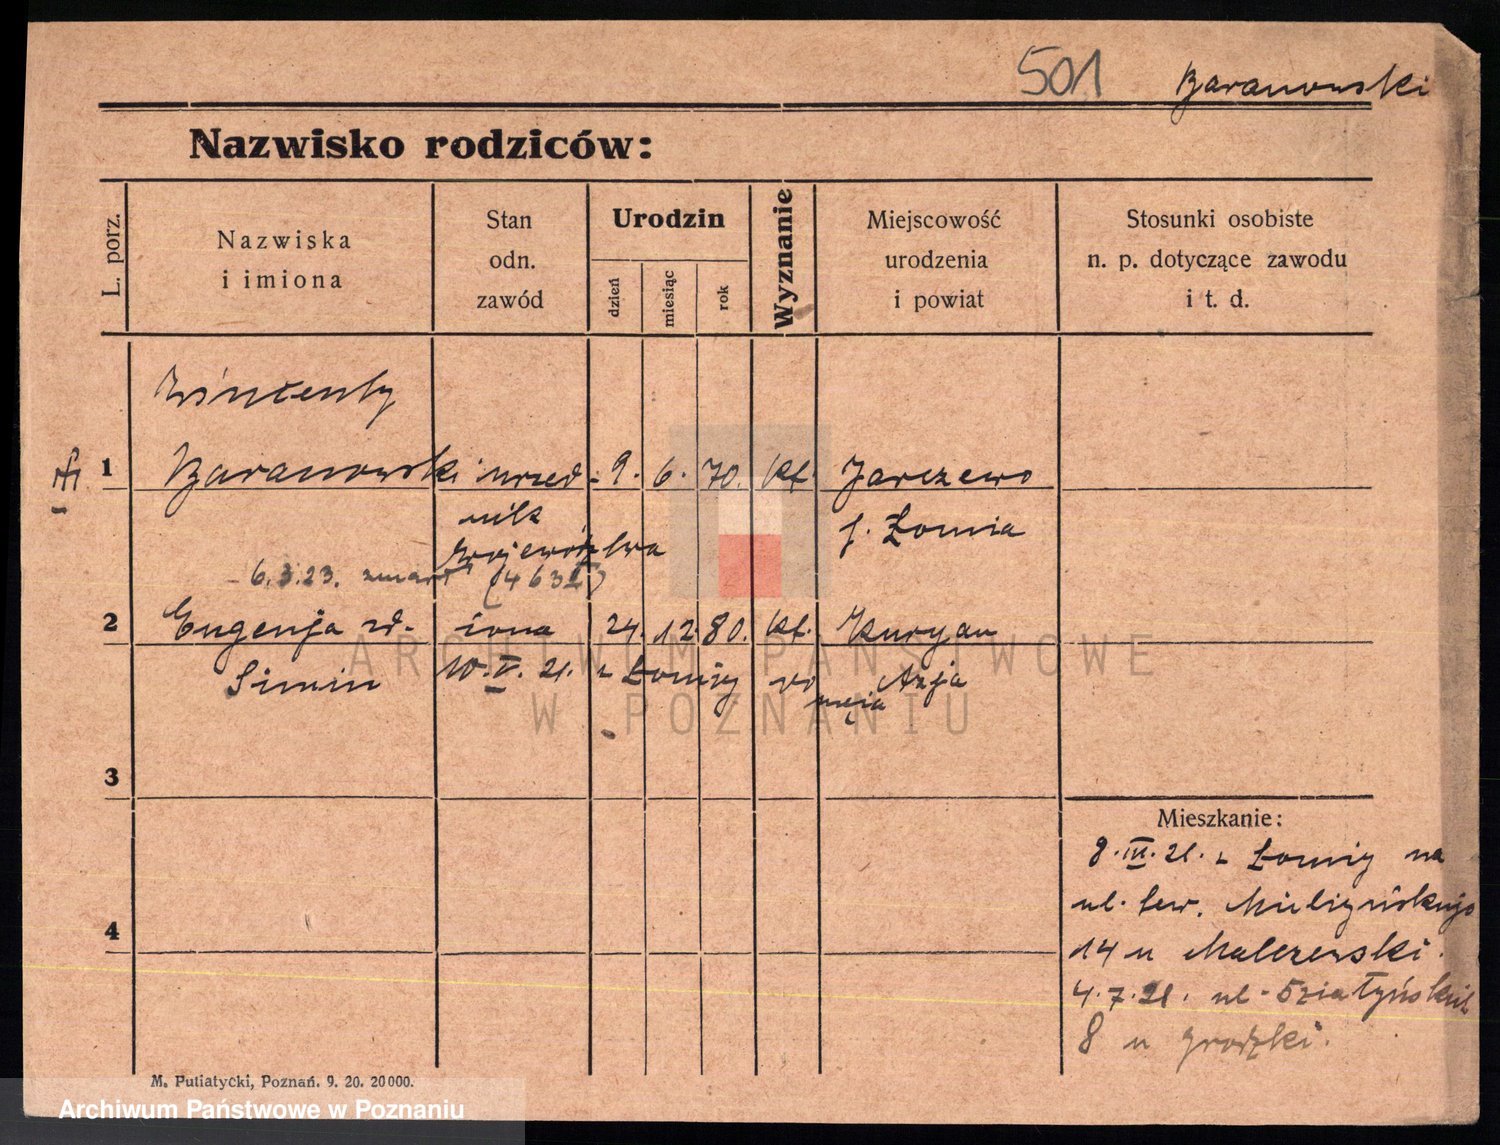 501 Baranowski
Nazwisko rodziców:
L. porz.
Nazwiska
i imiona
Stan
odn.
zawód
Urodzin
dzień
miesiąc
rok
Wyznanie
Miejscowość
urodzenia
i powiat
Stosunki osobiste
n. p. dotyczące zawodu
i t. d.
Wincenty
1 Baranowski urzęd- 9. 6. 70. kt. Jarczewo
nik
p. Łomża
Województwa
6.3.23. zmarł (4632)
2 Eugenja ur. żona 24. 12. 80. kt. Kuryan
Simin 10.V.21. z Łomży do Azja
męża
3
4
Mieszkanie:
8.III.21. z Łomży na
ul. sew. Mielżyńskiego
14 u Malczewski.
4.7.21. ul. Działyńskich
8 u Grodzki.
M. Putiatycki, Poznań. 9. 20. 20000.
ARCHIWUM PAŃSTWOWE
W POZNANIU
Archiwum Państwowe w Poznaniu